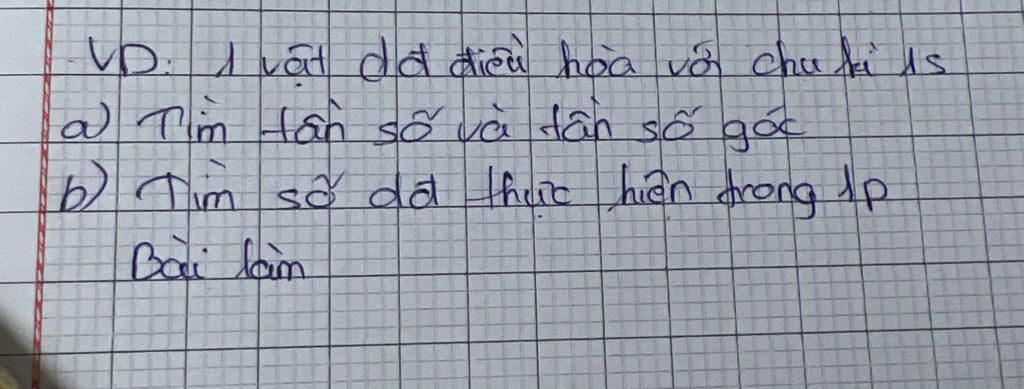 VD: 1 vật dđ điều hòa với chu kì 1s
a) Tìm tần số và tần số góc
b) Tìm số dđ thực hiện trong 1p
Bài làm